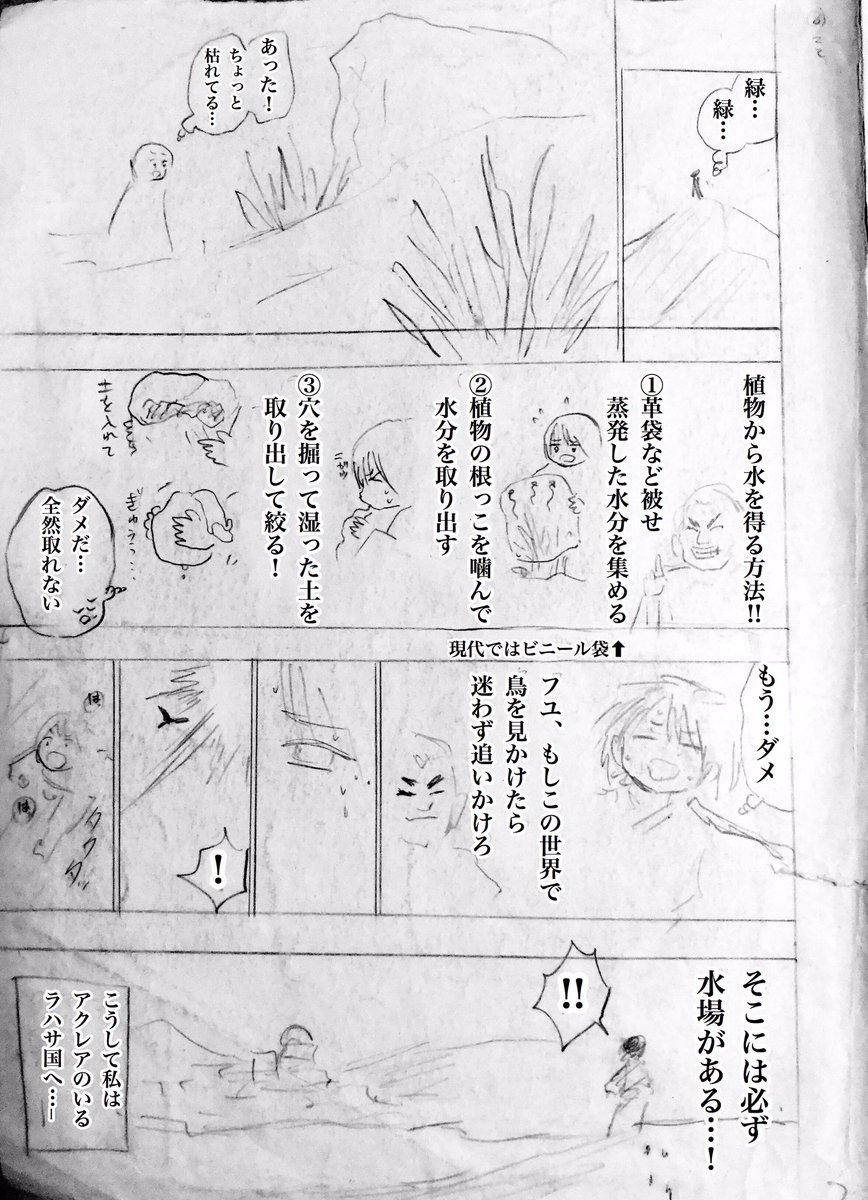 緑…
緑…
あった！
ちょっと
枯れてる…
植物から水を得る方法!!
①革袋など被せ
蒸発した水分を集める
②植物の根っこを噛んで
水分を取り出す
③穴を掘って湿った土を
取り出して絞る！
土を入れて
ぎゅうっ…
ダメだ…
全然取れない
現代ではビニール袋⬆
もう…ダメ
フユ、もしこの世界で
鳥を見かけたら
迷わず追いかけろ
！
は
は
そこには必ず
水場がある…！
!!
こうして私は
アクレアのいる
ラハサ国へ…